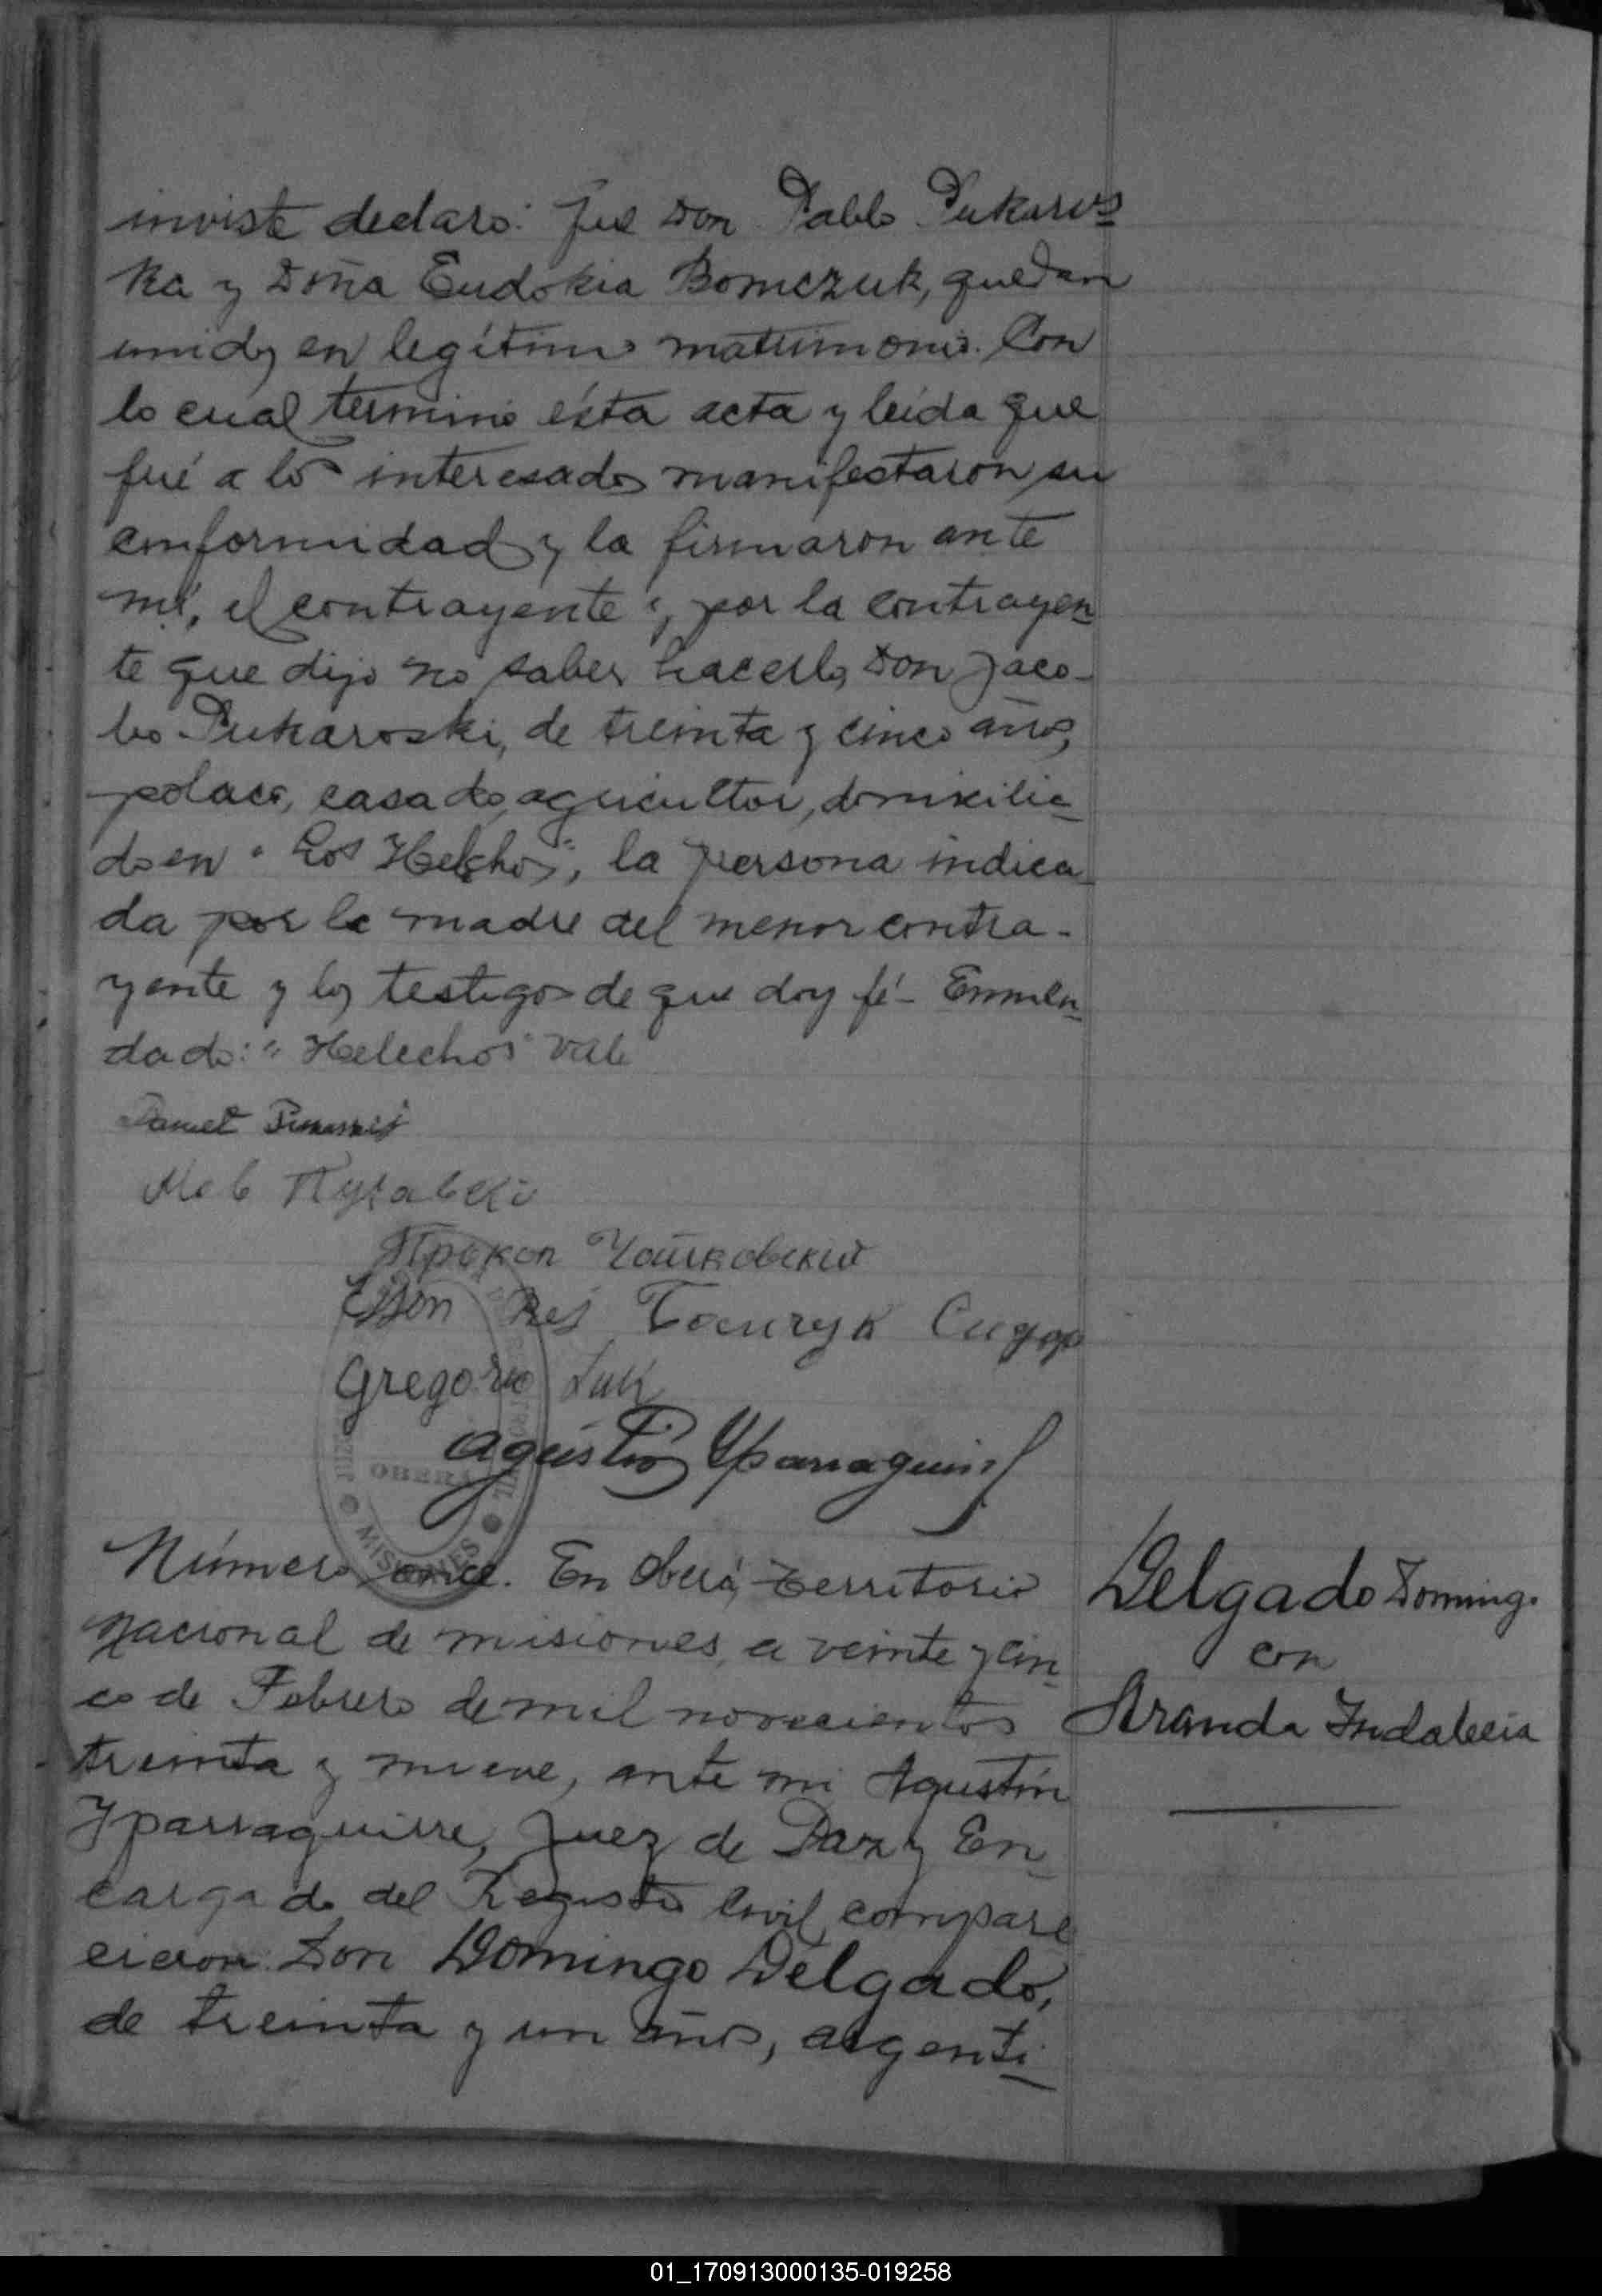 inviste declaro: Que Don Pablo Pukarus
ka y Doña Eudokia Bomczuk, quedan
unidos en legítimo matrimonio. Con
lo cuál terminó ésta acta y leída que
fué a los interesados manifestaron su
conformidad y la firmaron ante
mí, el contrayente y, por la contrayen
te que dijo no saber hacerlo, Don Jaco-
bo Pukaroski, de treinta y cinco años,
polaco, casado, agricultor, domicilia
do en "Los Helechos", la persona indica
da por la madre del menor contra-
yente y los testigos de que doy fé- Enmen
dado: "Helechos" vale
Прокоп Чайковский
Бомчук Сидор
Gregorio
Agustín Yparraguirre
OBERÁ
MISIONES
Número once. En Oberá, Territorio
Nacional de misiones, a veinte y cin
co de Febrero de mil novecientos
treinta y nueve, ante mi Agustín
Yparraguirre, Juez de Paz y En
cargado del Registro Civil, compare
cieron: Don Domingo Delgado,
de treinta y un años, argenti
Delgado Domingo
con
Aranda Indalecia
01_170913000135-019258